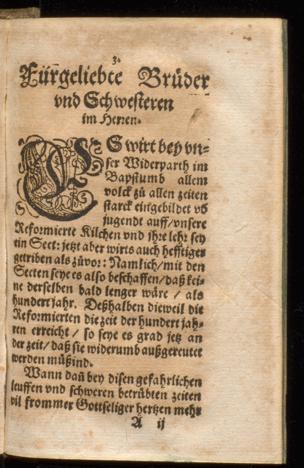 3.
Fürgeliebte Brüder
vnd Schwesteren
im Herren.
ES wirt bey vn-
ser Widerparth im
Bapstumb allem
volck zů allen zeiten
starck eingebildet võ
jugendt auff/vnsere
Reformierte Kilchen vnd jhre lehr sey
ein Sect: jetzt aber wirts auch hefftiger
getriben als zůvor: Namlich/mit den
Secten seye es also beschaffen/daß kei-
ne derselben bald lenger wäre / als
hundert jahr. Deßhalben dieweil die
Reformierten die zeit der hundert jah-
ren erreicht / so seye es grad jetz an
der zeit/daß sie widerumb außgereutet
werden müßind.
Wann dañ bey disen gefahrlichen
leuffen vnd schweren betrübten zeiten
vil frommer Gottseliger hertzen mehr
A ij